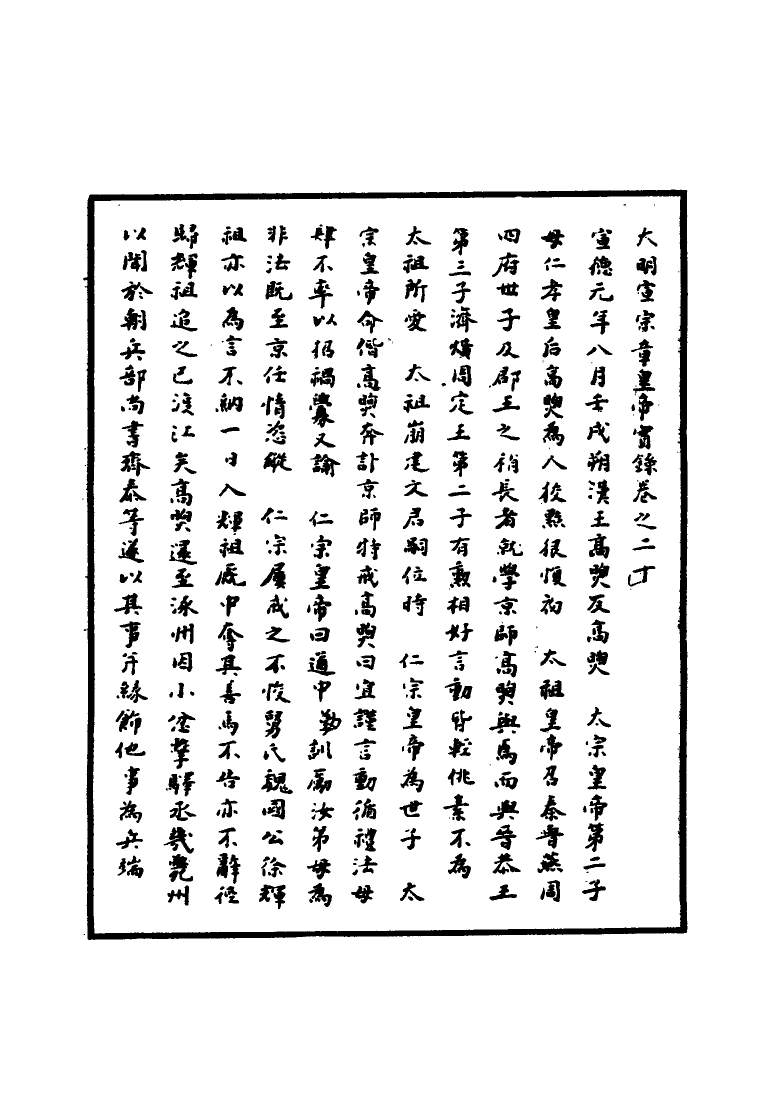 大明宣宗章皇帝實錄卷之二十
宣德元年八月壬戌朔漢王高煦反高煦　太宗皇帝第二子
母仁孝皇后高煦為人狡黠很愎初　太祖皇帝召秦晉燕周
四府世子及郡王之稍長者就學京師高煦與焉而與晉恭王
第三子濟熿周定王第二子有爋相好言動皆輕佻素不為
太祖所愛　太祖崩建文君嗣位時　仁宗皇帝為世子　太
宗皇帝命偕高煦奔訃京師特戒高煦曰宜謹言動循禮法毋
肆不率以招禍釁又諭　仁宗皇帝曰道中勤訓勵汝弟毋為
非法既至京任情恣縱　仁宗屢戒之不悛舅氏魏國公徐輝
祖亦以為言不納一日入輝祖廐中奪其善馬不告亦不辭徑
歸輝祖追之已渡江矣高煦還至涿州因小忿擊驛丞幾斃州
以聞於朝兵部尚書齊泰等遂以其事并緣飾他事為兵端